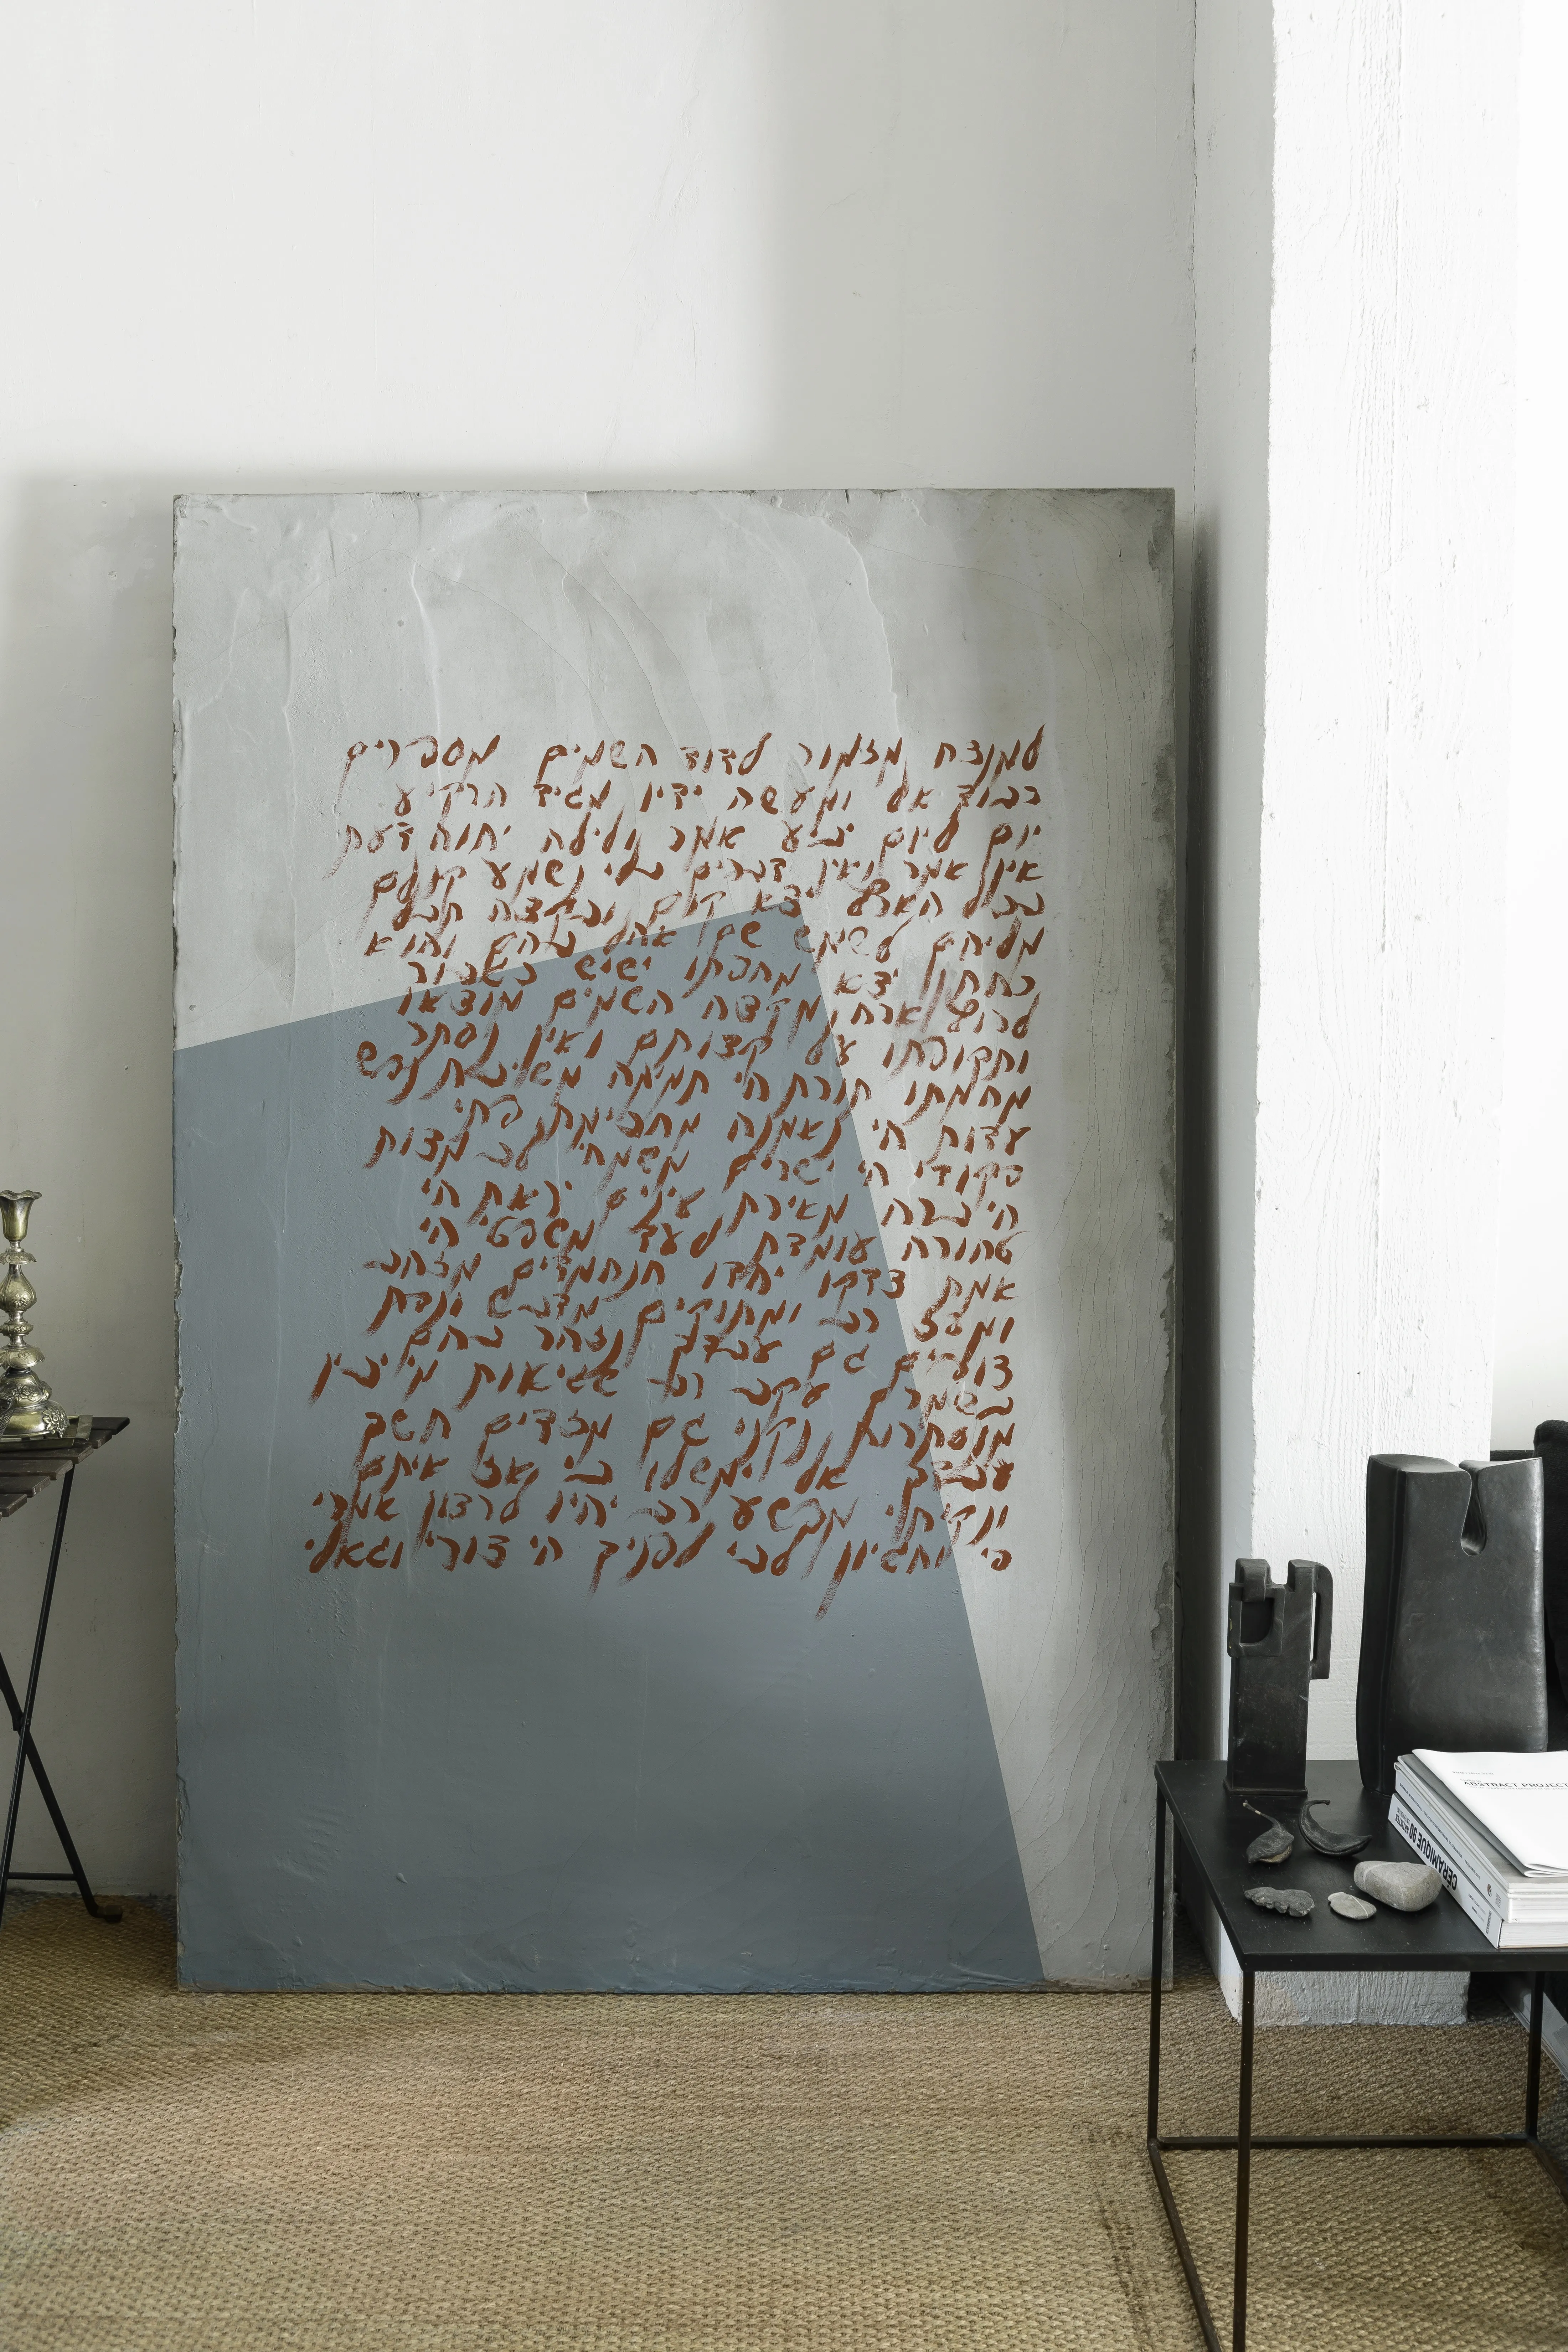 למנצח מזמור לדוד השמים מספרים
כבוד אל ומעשה ידיו מגיד הרקיע
יום ליום יביע אמר ולילה יחוה דעת
אין אמר ואין דברים בלי נשמע קולם
בכל הארץ יצא קום ובקצה תבל
מליהם לשמש שם אהל בהם והוא
כחתן יצא מחפתו ישיש כגבור
לרוץ ארח מקצה השמים מוצאו
ותקופתו על קצותם ואין נסתר
מחמתו תורת הי תמימה משיבת נפש
עדות הי נאמנה מחכימת פתי
פקודי הי ישרים משמחי לב מצות
הי ברה מאירת עינים יראת הי
טהורה עומדת לעד משפטי הי
אמת צדקו יחדו הנחמדים מזהב
ומפז רב ומתוקים מדבש ונפת
צופים גם עבדך נזהר בהם
בשמרם עקב רב שגיאות מי יבין
מנסתרות נקני גם מזדים חשך
עבדך אל ימשלו בי אז איתם
ונקיתי מפשע רב יהיו לרצון אמרי
פי והגיון לבי לפניך הי צורי וגאלי
ABSTRACT PROJECT
CÉRAMIQUE 90